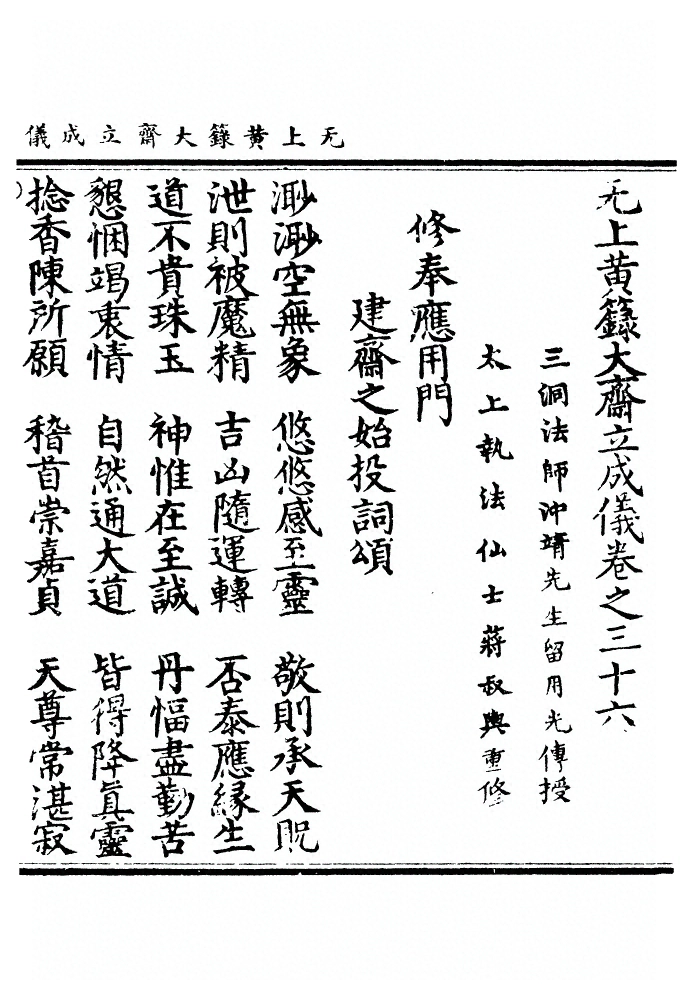 无上黄籙大齋立成儀
无上黄籙大齋立成儀卷之三十六
三洞法師沖靖先生留用光傳授
太上執法仙士蔣叔輿重修
修奉應用門
建齋之始投詞頌
渺渺空無象 悠悠感至靈 敬則承天貺
泄則被魔精 吉凶隨運轉 否泰應緣生
道不貴珠玉 神惟在至誠 丹愊盡勤苦
懇悃竭衷情 自然通大道 皆得降真靈
捻香陳所願 稽首崇嘉貞 天尊常湛寂